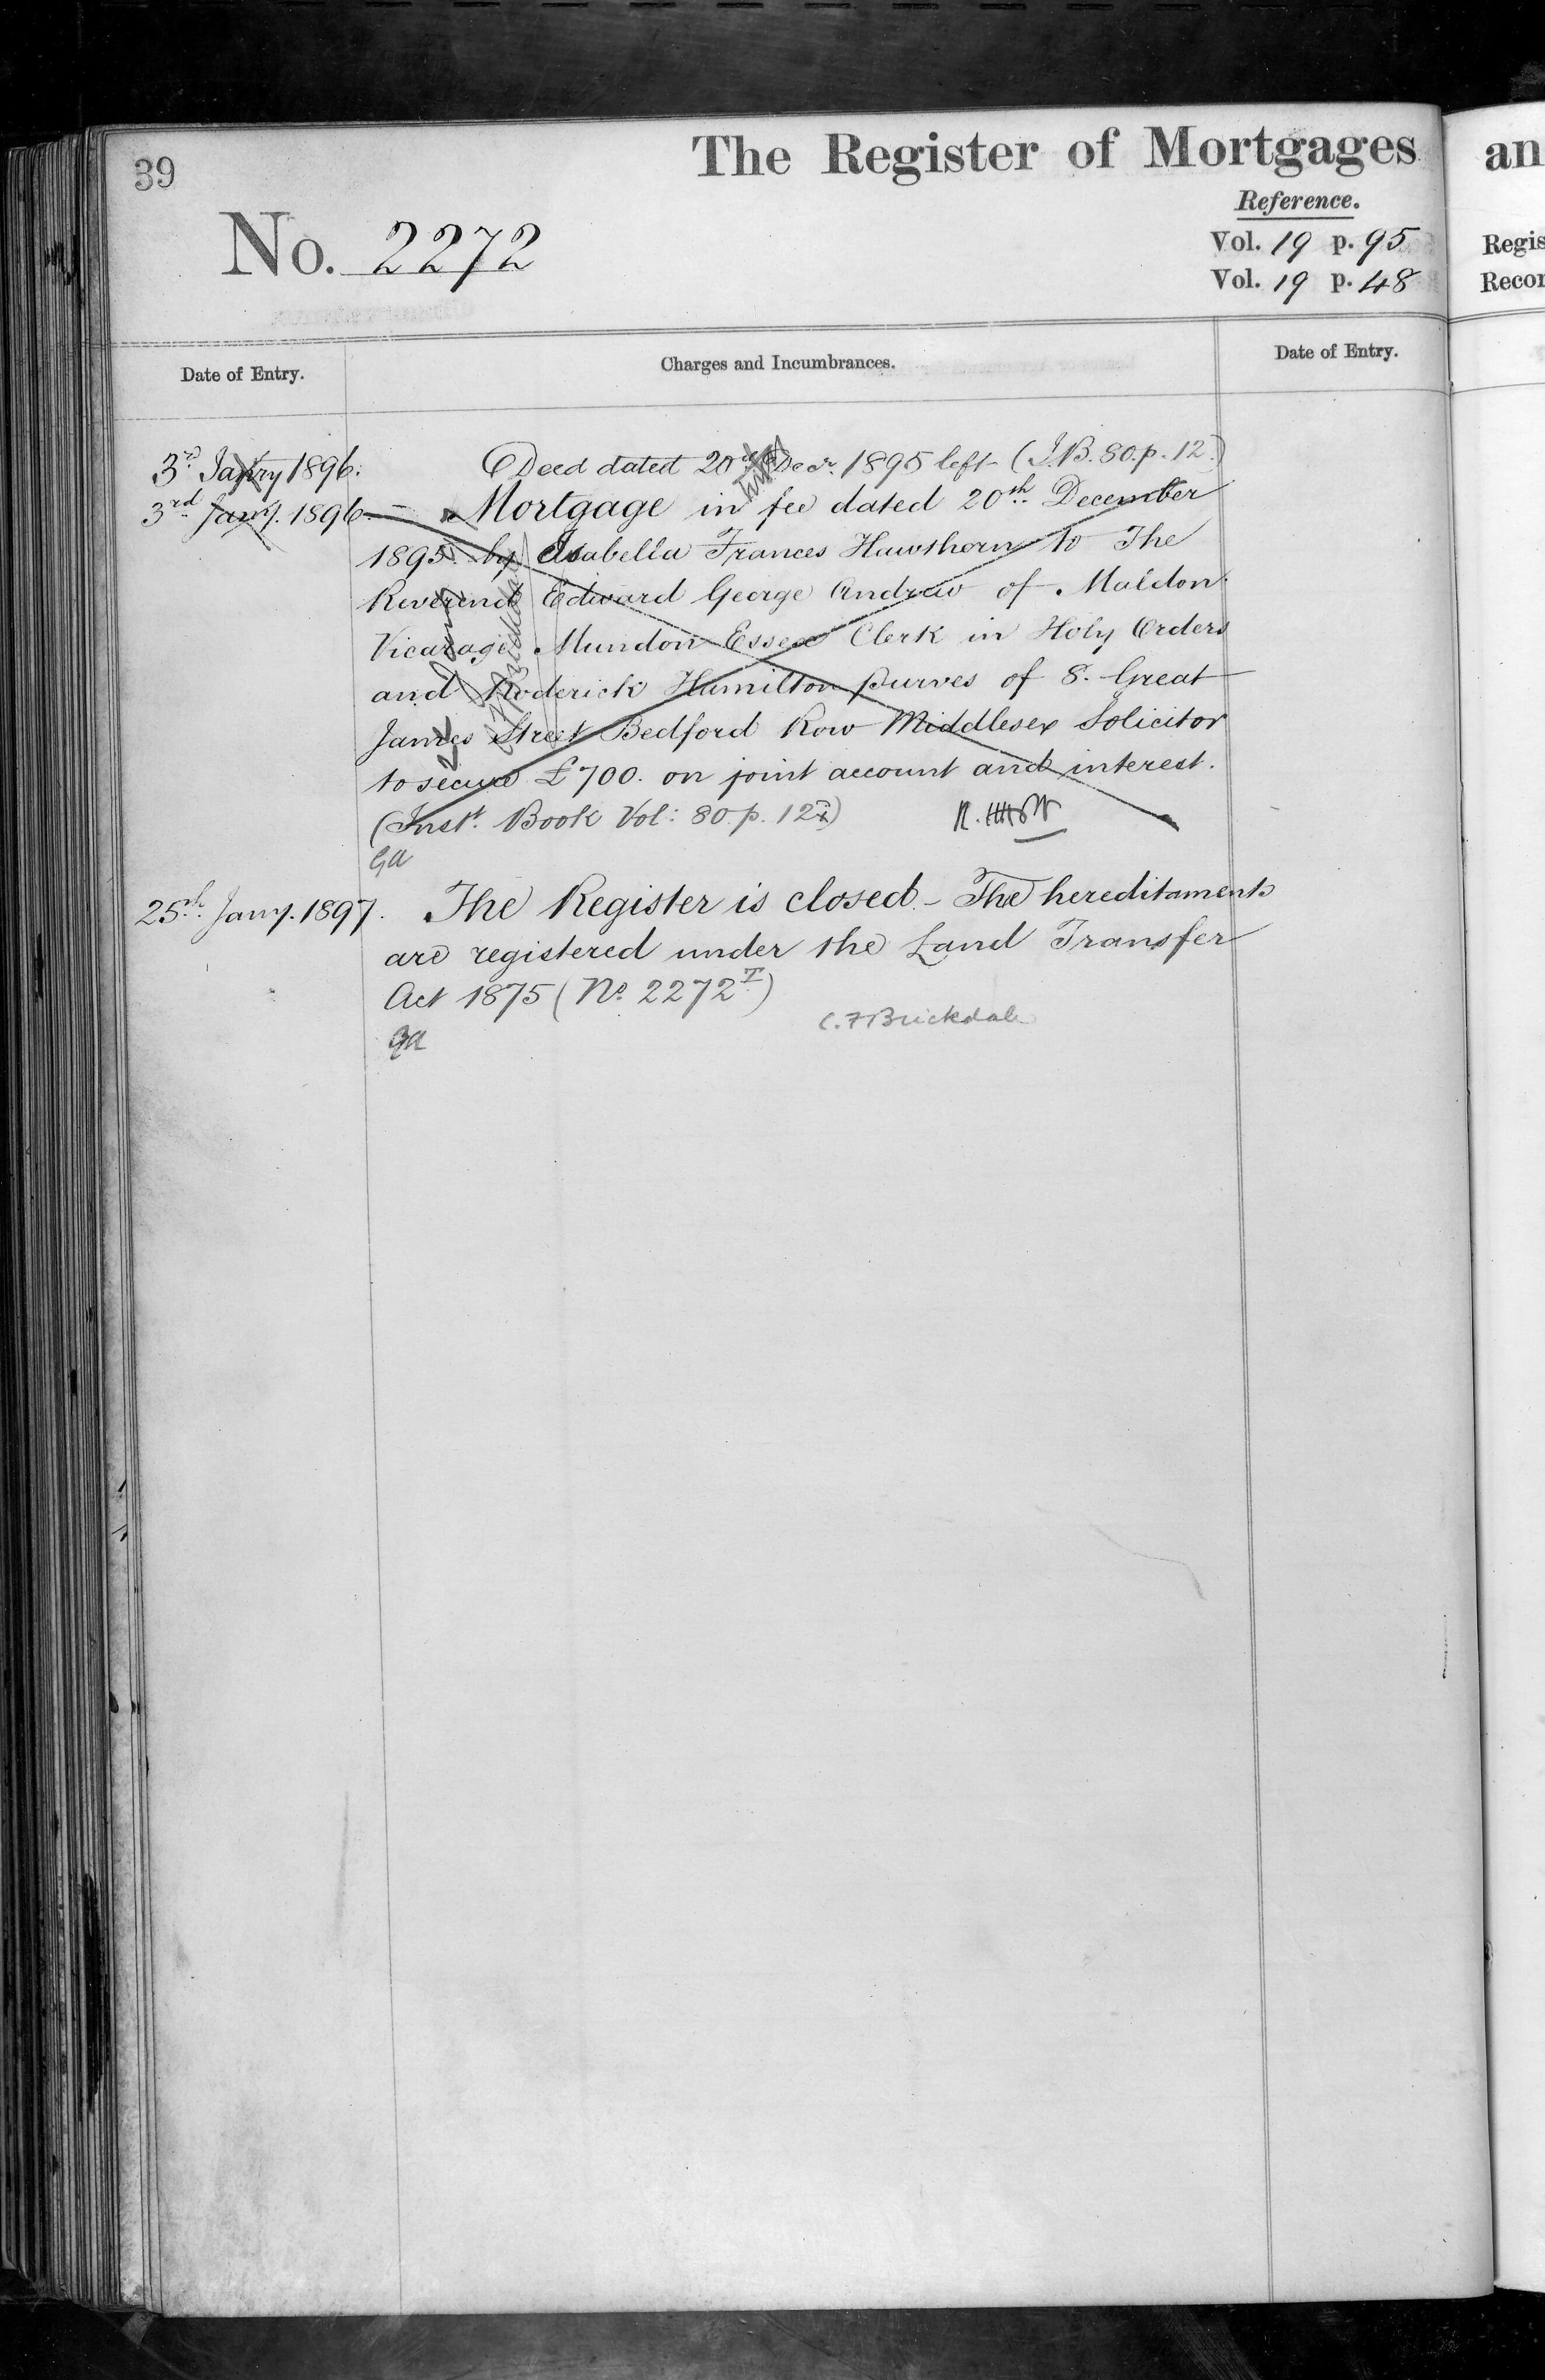 39
The Register of Mortgages
an
Reference.
No. 2272
Vol. 19 p. 95
Regis
Vol. 19 p. 48
Recor
Date of Entry.
Charges and Incumbrances.
Date of Entry.
3rd Janry 1896. Deed dated 20th Decr. 1895 left (I.B. 80. p. 12.)
3rd Jany. 1896 — Mortgage in fee dated 20th December
1895 by Isabella Frances Hawthorn to The
Reverend Edward George Andrew of Maldon
Vicarage Mundon Essex Clerk in Holy Orders
and Roderick Hamilton Purves of 8. Great
James Street Bedford Row Middlesex Solicitor
to secure £700. on joint account and interest.
(Inst. Book Vol: 80. p. 12)
GA
25th Jany. 1897. The Register is closed - The hereditaments
are registered under the Land Transfer
Act 1875 (No. 2272 T)
C. F Brickdale
GA